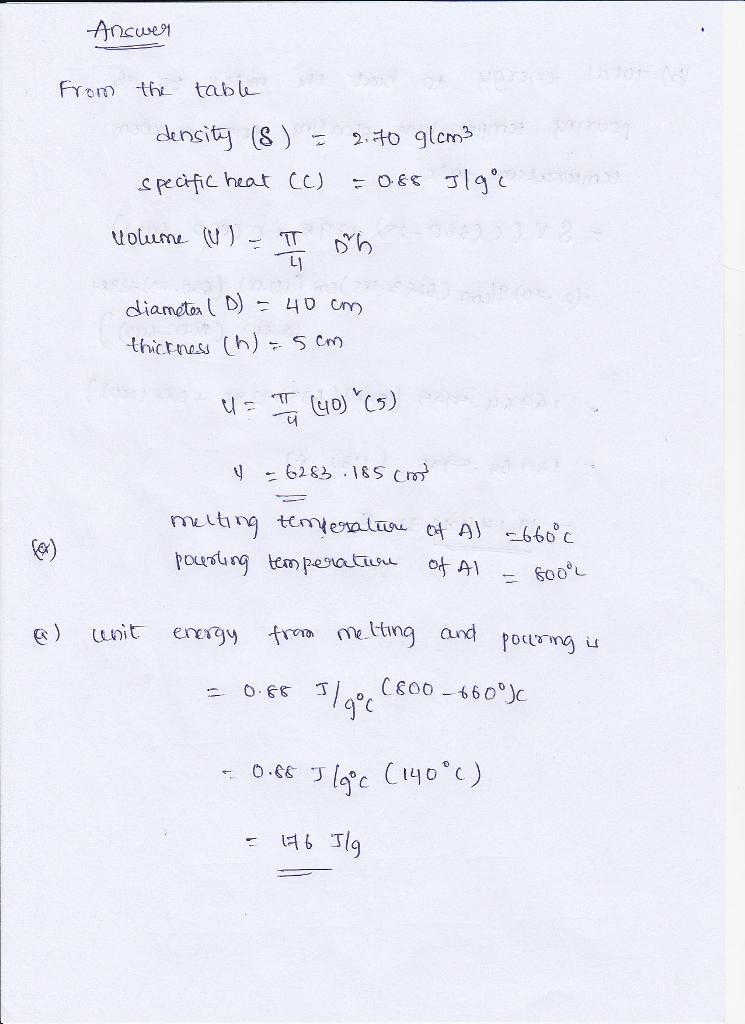 Answer
From the table
density (S) = 2.70 g/cm³
specific heat (C) = 0.88 J/g°C
Volume (V) = π/4 D²h
diameter (D) = 40 cm
thickness (h) = 5 cm
V = π/4 (40)²(5)
V = 6283.185 cm³
melting temperature of Al = 660°C
(a) pouring temperature of Al = 800°C
a) unit energy from melting and pouring is
= 0.88 J/g°C (800-660°)C
= 0.88 J/g°C (140°C)
= 176 J/g